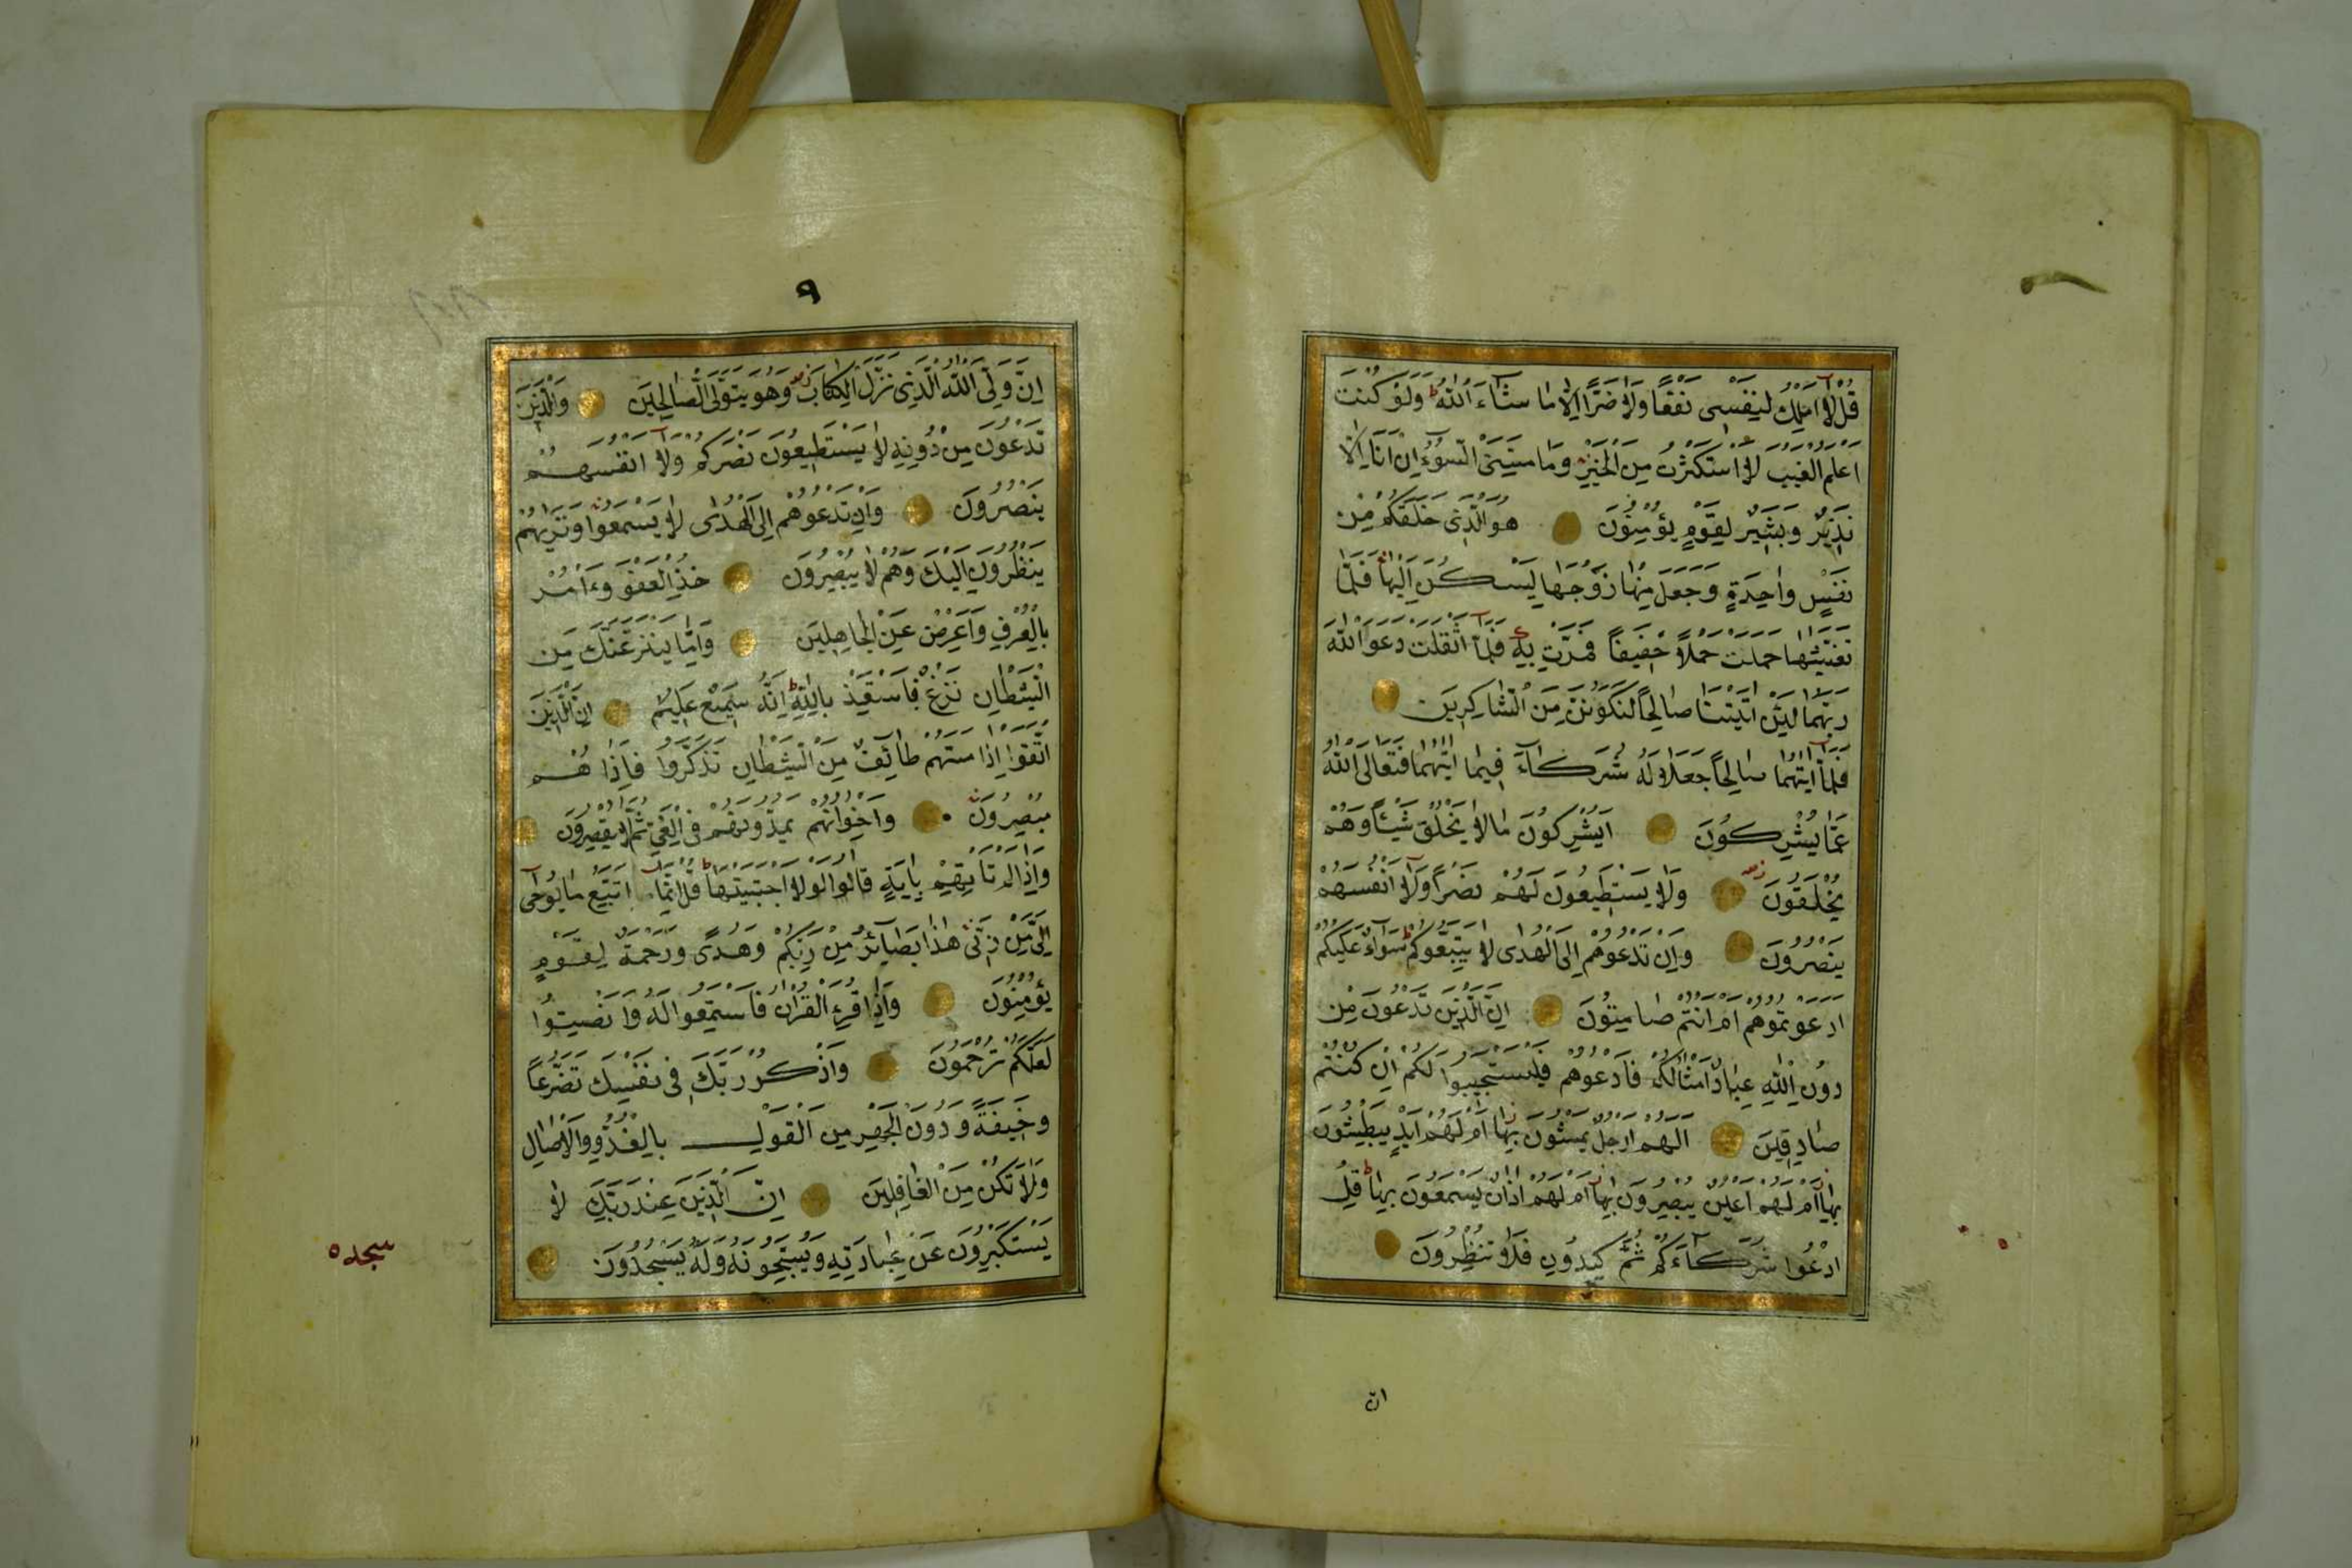 قُلْ لَا اَمْلِكُ لِنَفْسِى نَفْعًا وَلَا ضَرًّا اِلَّا مَا شَآءَ اللّٰهُ ط وَلَوْ كُنْتُ
اَعْلَمُ الْغَيْبَ لَاسْتَكْثَرْتُ مِنَ الْخَيْرِ وَمَا مَسَّنِىَ السُّوۤءُ اِنْ اَنَا اِلَّا
نَذِيرٌ وَبَشِيرٌ لِقَوْمٍ يُؤْمِنُونَ هُوَ الَّذِى خَلَقَكُمْ مِنْ
نَفْسٍ وَاحِدَةٍ وَجَعَلَ مِنْهَا زَوْجَهَا لِيَسْكُنَ اِلَيْهَا فَلَمَّا
تَغَشّٰيهَا حَمَلَتْ حَمْلًا خَفِيفًا فَمَرَّتْ بِهِ فَلَمَّآ اَثْقَلَتْ دَعَوَا اللّٰهَ
رَبَّهُمَا لَئِنْ اٰتَيْتَنَا صَالِحًا لَنَكُونَنَّ مِنَ الشَّاكِرِينَ
فَلَمَّآ اٰتٰيهُمَا صَالِحًا جَعَلَا لَهُ شُرَكَآءَ فِيمَا اٰتٰيهُمَا فَتَعَالَى اللّٰهُ
عَمَّا يُشْرِكُونَ اَيُشْرِكُونَ مَا لَا يَخْلُقُ شَيْئًا وَهُمْ
يُخْلَقُونَ وَلَا يَسْتَطِيعُونَ لَهُمْ نَصْرًا وَلَآ اَنْفُسَهُمْ
يَنْصُرُونَ وَاِنْ تَدْعُوهُمْ اِلَى الْهُدٰى لَا يَتَّبِعُوكُمْ ط سَوَآءٌ عَلَيْكُمْ
اَدَعَوْتُمُوهُمْ اَمْ اَنْتُمْ صَامِتُونَ اِنَّ الَّذِينَ تَدْعُونَ مِنْ
دُونِ اللّٰهِ عِبَادٌ اَمْثَالُكُمْ فَادْعُوهُمْ فَلْيَسْتَجِيبُوا لَكُمْ اِنْ كُنْتُمْ
صَادِقِينَ اَلَهُمْ اَرْجُلٌ يَمْشُونَ بِهَا اَمْ لَهُمْ اَيْدٍ يَبْطِشُونَ
بِهَآ اَمْ لَهُمْ اَعْيُنٌ يُبْصِرُونَ بِهَآ اَمْ لَهُمْ اٰذَانٌ يَسْمَعُونَ بِهَا ط قُلِ
ادْعُوا شُرَكَآءَكُمْ ثُمَّ كِيدُونِ فَلَا تُنْظِرُونِ
ان
٩
اِنَّ وَلِيِّىَ اللّٰهُ الَّذِى نَزَّلَ الْكِتَابَ وَهُوَ يَتَوَلَّى الصَّالِحِينَ وَالَّذِينَ
تَدْعُونَ مِنْ دُونِهِ لَا يَسْتَطِيعُونَ نَصْرَكُمْ وَلَآ اَنْفُسَهُمْ
يَنْصُرُونَ وَاِنْ تَدْعُوهُمْ اِلَى الْهُدٰى لَا يَسْمَعُوا وَتَرٰيهُمْ
يَنْظُرُونَ اِلَيْكَ وَهُمْ لَا يُبْصِرُونَ خُذِ الْعَفْوَ وَءْامُرْ
بِالْعُرْفِ وَاَعْرِضْ عَنِ الْجَاهِلِينَ وَاِمَّا يَنْزَغَنَّكَ مِنَ
الشَّيْطَانِ نَزْغٌ فَاسْتَعِذْ بِاللّٰهِ ط اِنَّهُ سَمِيعٌ عَلِيمٌ اِنَّ الَّذِينَ
اتَّقَوْا اِذَا مَسَّهُمْ طَآئِفٌ مِنَ الشَّيْطَانِ تَذَكَّرُوا فَاِذَا هُمْ
مُبْصِرُونَ وَاِخْوَانُهُمْ يَمُدُّونَهُمْ فِى الْغَىِّ ثُمَّ لَا يُقْصِرُونَ
وَاِذَا لَمْ تَأْتِهِمْ بِاٰيَةٍ قَالُوا لَوْلَا اجْتَبَيْتَهَا ط قُلْ اِنَّمَآ اَتَّبِعُ مَا يُوحٰى
اِلَىَّ مِنْ رَبِّى هٰذَا بَصَآئِرُ مِنْ رَبِّكُمْ وَهُدًى وَرَحْمَةٌ لِقَوْمٍ
يُؤْمِنُونَ وَاِذَا قُرِئَ الْقُرْاٰنُ فَاسْتَمِعُوا لَهُ وَاَنْصِتُوا
لَعَلَّكُمْ تُرْحَمُونَ وَاذْكُرْ رَبَّكَ فِى نَفْسِكَ تَضَرُّعًا
وَخِيفَةً وَدُونَ الْجَهْرِ مِنَ الْقَوْلِ بِالْغُدُوِّ وَالْاٰصَالِ
وَلَا تَكُنْ مِنَ الْغَافِلِينَ اِنَّ الَّذِينَ عِنْدَ رَبِّكَ لَا
يَسْتَكْبِرُونَ عَنْ عِبَادَتِهِ وَيُسَبِّحُونَهُ وَلَهُ يَسْجُدُونَ
سجده